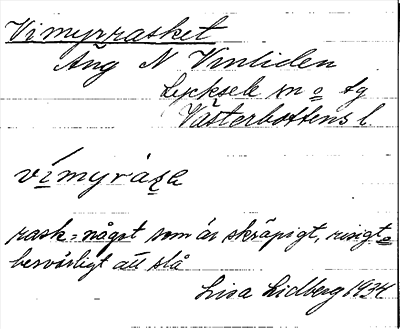 Vimyrrasket
Äng N Vinliden
Lycksele m o sg
Västerbottens l.
vímyráʂa
rask = något som är skräpigt, risigt o
besvärligt att slå
Lisa Lidberg 1934